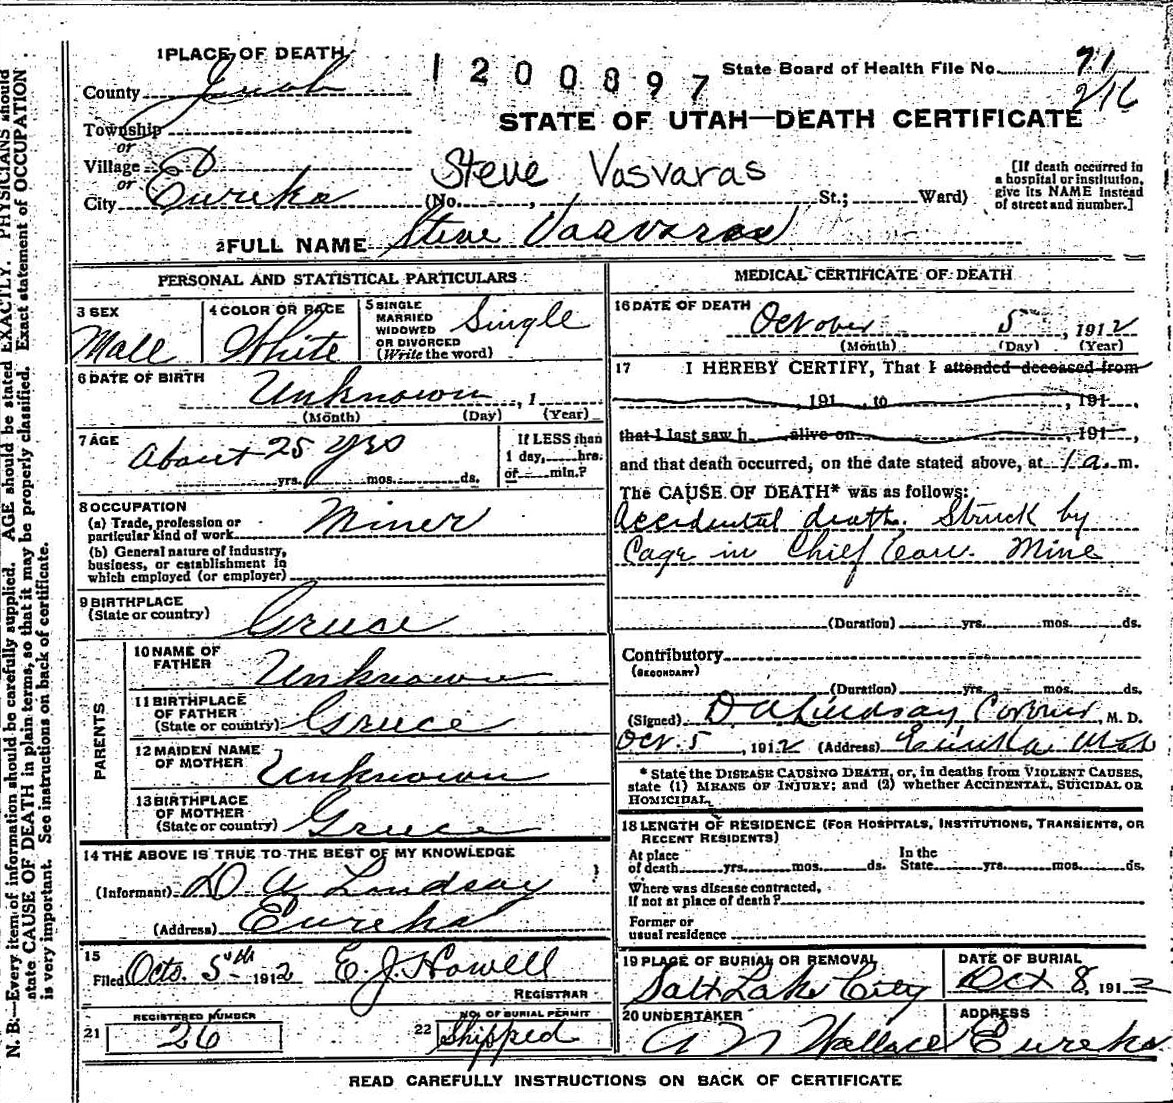 1 PLACE OF DEATH
1200897
State Board of Health File No. 71
216
County Juab
STATE OF UTAH—DEATH CERTIFICATE
Township
or
Village
or
City Eureka
Steve Vasvaras
(No. , St.; Ward)
[If death occurred in
a hospital or institution,
give its NAME instead
of street and number.]
2 FULL NAME Steve Vasvaras
PERSONAL AND STATISTICAL PARTICULARS
3 SEX
Male
4 COLOR OR RACE
White
5 SINGLE
MARRIED
WIDOWED
OR DIVORCED
(Write the word)
Single
6 DATE OF BIRTH
Unknown , 1
(Month) (Day) (Year)
7 AGE
About 25 yrs
yrs. mos. ds.
If LESS than
1 day, hrs.
or min.?
8 OCCUPATION
(a) Trade, profession or
particular kind of work Miner
(b) General nature of industry,
business, or establishment in
which employed (or employer)
9 BIRTHPLACE
(State or country) Greese
PARENTS
10 NAME OF
FATHER Unknown
11 BIRTHPLACE
OF FATHER
(State or country) Greece
12 MAIDEN NAME
OF MOTHER Unknown
13 BIRTHPLACE
OF MOTHER
(State or country) Greece
14 THE ABOVE IS TRUE TO THE BEST OF MY KNOWLEDGE
(Informant) D A Lindsay
(Address) Eureka
15
Filed Octo. 5th 1912 E. J. Howell
REGISTRAR
21 REGISTERED NUMBER
26
22 NO. OF BURIAL PERMIT
Shipped
MEDICAL CERTIFICATE OF DEATH
16 DATE OF DEATH
October 5 , 1912
(Month) (Day) (Year)
17 I HEREBY CERTIFY, That I attended deceased from
, 191 , to , 191 ,
that I last saw h alive on , 191 ,
and that death occurred, on the date stated above, at 1 a. m.
The CAUSE OF DEATH* was as follows:
Accidental death. Struck by
Cage in Chief Con. Mine
(Duration) yrs. mos. ds.
Contributory
(SECONDARY)
(Duration) yrs. mos. ds.
(Signed) D A Lindsay Coroner, M. D.
Oct. 5 , 1912 (Address) Eureka Utah
* State the DISEASE CAUSING DEATH, or, in deaths from VIOLENT CAUSES,
state (1) MEANS OF INJURY; and (2) whether ACCIDENTAL, SUICIDAL OR
HOMICIDAL.
18 LENGTH OF RESIDENCE (FOR HOSPITALS, INSTITUTIONS, TRANSIENTS, OR
RECENT RESIDENTS)
At place
of death yrs. mos. ds.
In the
State yrs. mos. ds.
Where was disease contracted,
If not at place of death?
Former or
usual residence
19 PLACE OF BURIAL OR REMOVAL
Salt Lake City
DATE OF BURIAL
Oct 8, 1912
20 UNDERTAKER
A N Wallace
ADDRESS
Eureka
READ CAREFULLY INSTRUCTIONS ON BACK OF CERTIFICATE
N. B.—Every item of information should be carefully supplied. AGE should be stated EXACTLY. PHYSICIANS should
state CAUSE OF DEATH in plain terms, so that it may be properly classified. Exact statement of OCCUPATION
is very important. See instructions on back of certificate.